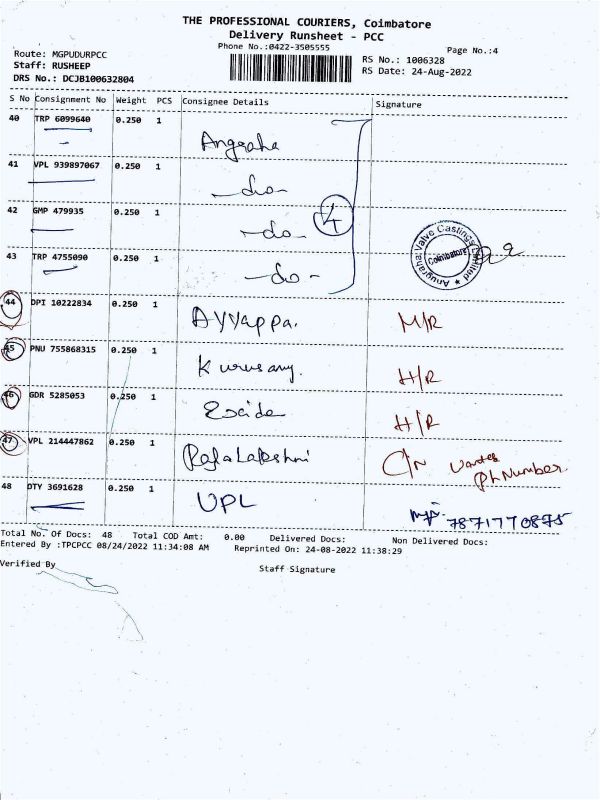 THE PROFESSIONAL COURIERS, Coimbatore
Delivery Runsheet - PCC
Phone No.:0422-3505555
Page No.:4
Route: MGPUDURPCC
Staff: RUSHEEP
DRS No.: DCJB100632804
RS No.: 1006328
RS Date: 24-Aug-2022
S No Consignment No Weight PCS Consignee Details Signature
40 TRP 6099640 0.250 1 Angraha
41 VPL 939897067 0.250 1 -do-
42 GMP 479935 0.250 1 -do-
4
43 TRP 4755090 0.250 1 -do-
Anugraha Valve Castings Limited
Coimbatore
44 DPI 10222834 0.250 1 Ayyappa. M/R
45 PNU 755868315 0.250 1 H/R
46 GDR 5285053 0.250 1 Exide H/R
47 VPL 214447862 0.250 1 RajaLakshmi C/N wanted
Ph Number
48 DTY 3691628 0.250 1 UPL 7871770875
Total No. Of Docs: 48 Total COD Amt: 0.00 Delivered Docs: Non Delivered Docs:
Entered By :TPCPCC 08/24/2022 11:34:08 AM Reprinted On: 24-08-2022 11:38:29
Verified By
Staff Signature